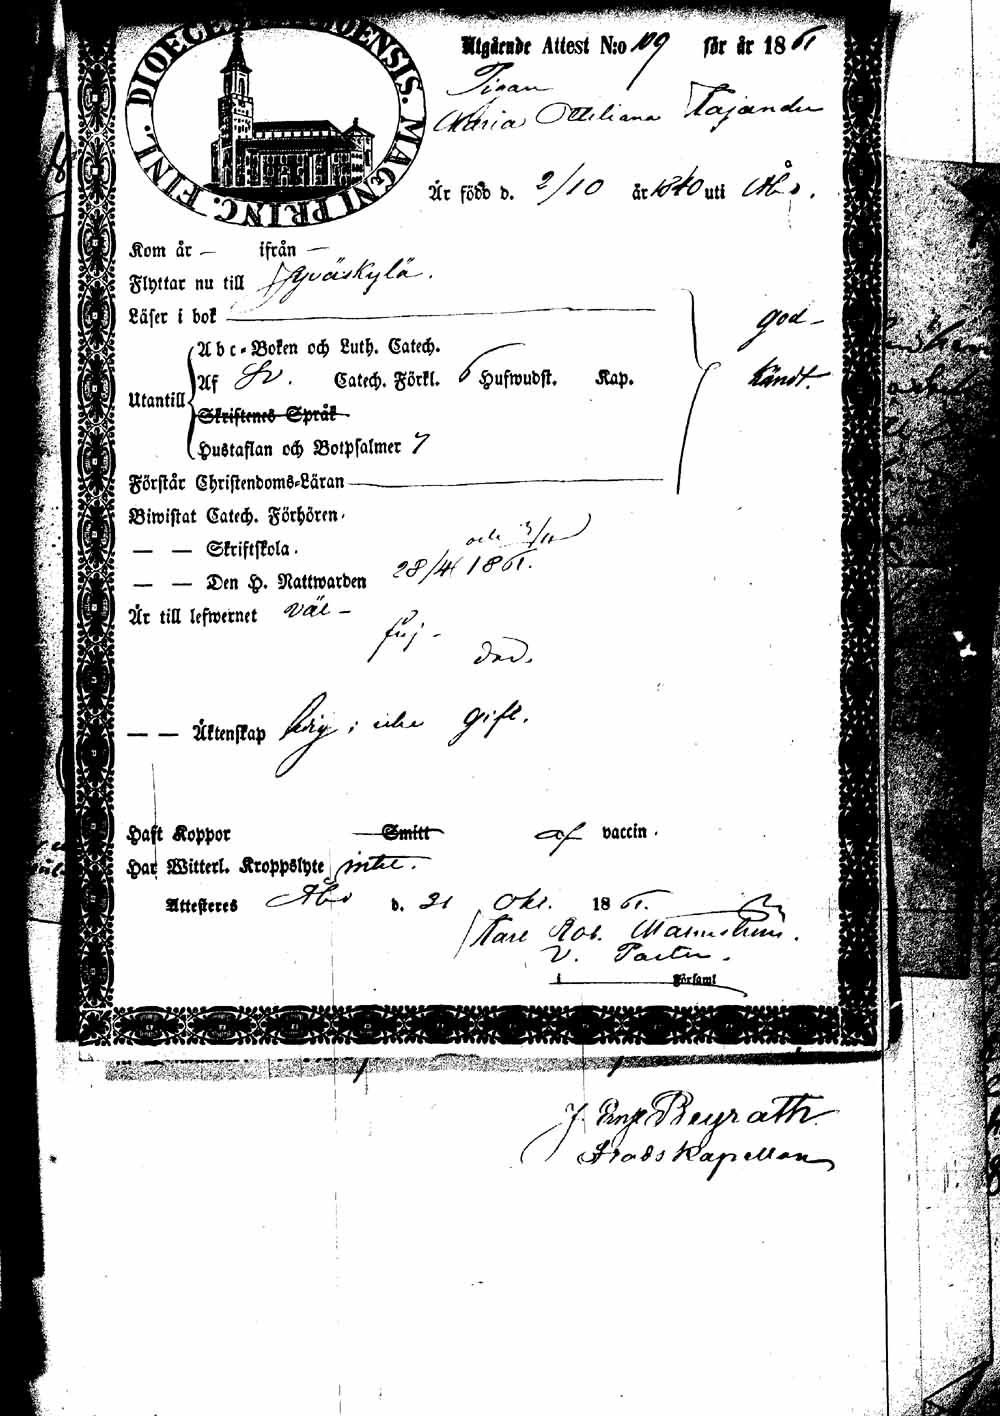 DIOECE ENSIS. MAGNI PRINC. FINL.
Utgående Attest N:o 109 för år 1861
Pigan
Maria Ottiliana Kajander
Är född d. 2/10 år 1840 uti Åbo.
Kom år — ifrån —
Flyttar nu till Jyväskylä.
Läser i bok
god-
Abc-Boken och Luth. Catech.
Utantill Af Sv. Catech. Förkl. 6 Hufwudst. Kap.
kändt.
Skriftenes Språk
Hustaflan och Botpsalmer 7
Förstår Christendoms-Läran
Biwistat Catech. Förhören.
— — Skriftskola.
och 3/11
— — Den H. Nattwarden 28/4 1861.
Är till lefwernet väl-
frej-
dad.
— — Äktenskap ledig; icke gift.
Haft Koppor Smitt af vaccin.
Har Witterl. Kroppslyte intet.
Attesteres Åbo d. 21 Okt. 1861.
Karl Rob. Malmström.
V. Pastor.
i Församl
J. Ernst Beyrath
Stadskapellan